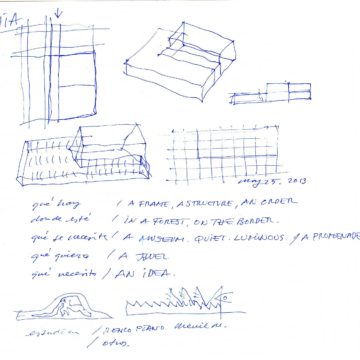 may 25. 2013
qué hay / A FRAME, A STRUCTURE, AN ORDER
donde está / IN A FOREST, ON THE BORDER.
qué se necesita / A MUSEUM. QUIET. LUMINOUS. / A PROMENADE
qué quiero / A JEWEL
qué necesito / AN IDEA.
estudiar / RENZO PIANO
/ otro.